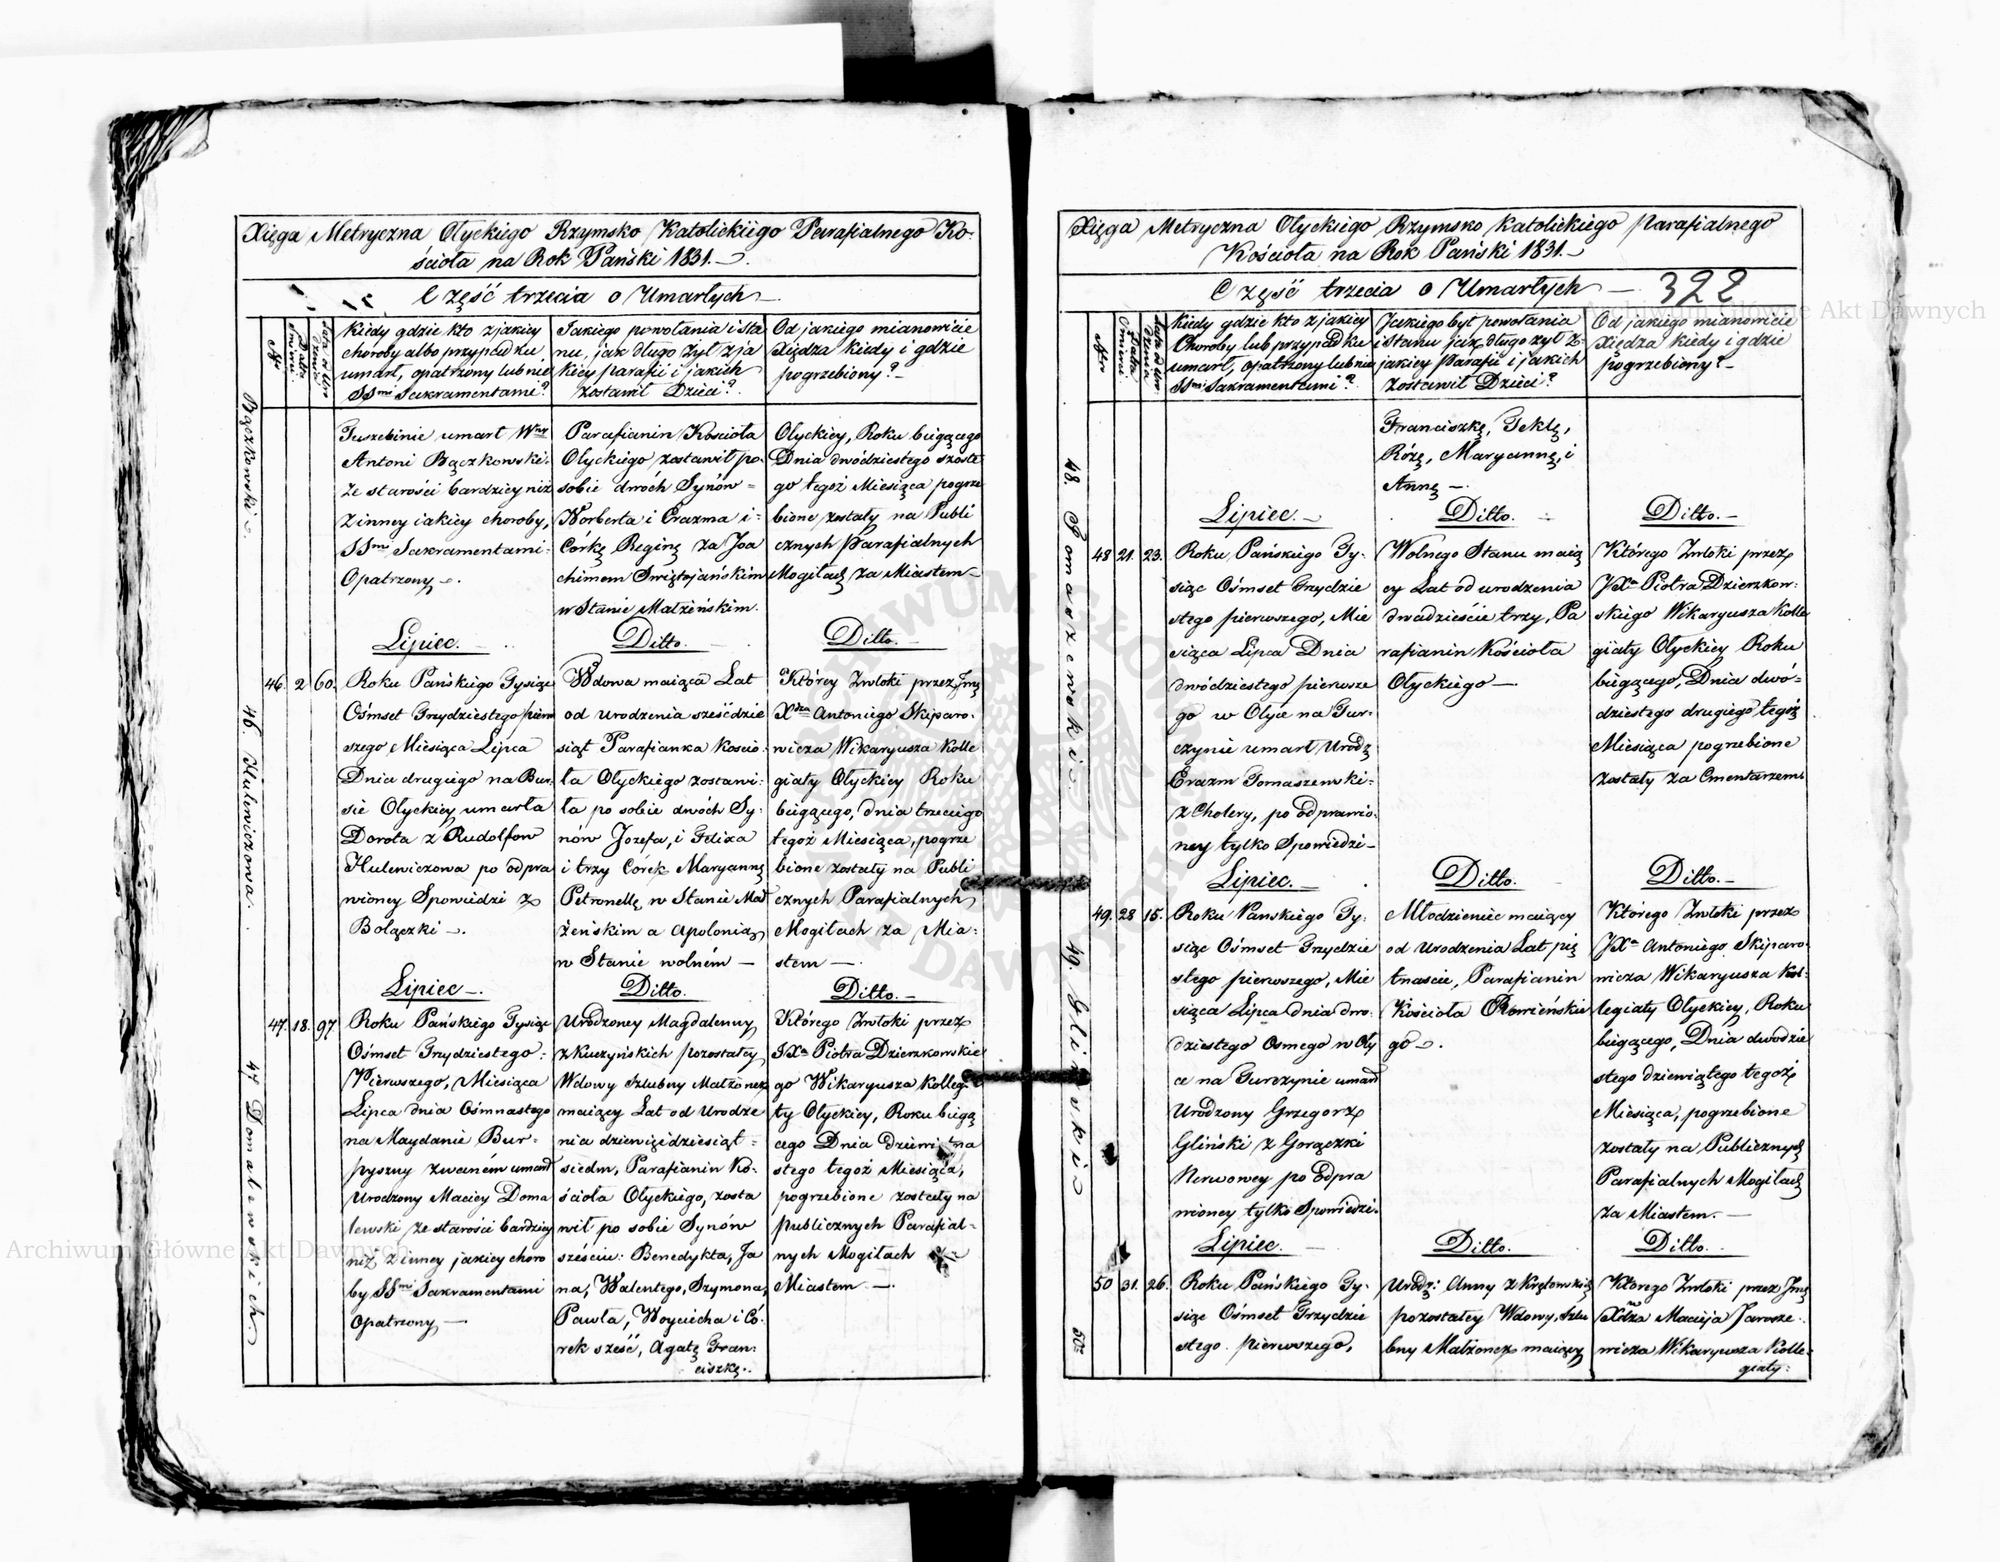 Xięga Metryczna Ołyckiego Rzymsko Katolickiego Parafialnego Ko-
ścioła na Rok Pański 1831.
Część trzecia o Umarłych
Nr
Data śmierci
Lata od Uro dzenia
Kiedy gdzie kto z jakiey
choroby albo przypadku,
umarł, opatrzony lub nie
SSmi Sakramentami?
Jakiego powołania i sta
nu, jak długo żył z ja
kiey parafii i jakich
zostawił Dzieci?
Od jakiego mianowicie
Xiędza kiedy i gdzie
pogrzebiony?
Bączkowski
umarł Wny
Antoni Bączkowski
ze starości bardziey niż
z inney iakiey choroby,
SSmi Sakramentami
Opatrzony
Parafianin Kościoła
Ołyckiego zostawił po-
sobie dwóch Synów
Norberta i Erazma i
Córkę Reginę za Joa
chimem Swiętojańskim
w Stanie Małżeńskim.
Ołyckiey, Roku bieżącego
Dnia dwódziestego szoste
go tegoż Miesiąca pogrze
bione zostały na Publi
cznych Parafialnych
Mogiłach za Miastem
Lipiec.
Ditto.
Ditto.
46. Hulewiczowa.
46. 2 60.
Roku Pańskiego Tysiąc
Ośmset Trzydziestego pierw
szego Miesiąca Lipca
Dnia drugiego na Bur-
sie Ołyckiey umarła
Dorota z Rudolfow
Hulewiczowa po odpra
wioney Spowiedzi z
Bolączki
Wdowa maiąca Lat
od urodzenia sześćdzie
siąt Parafianka Kościo-
ła Ołyckiego zostawi-
ła po sobie dwóch Sy-
nów Jozefa, i Felixa
i trzy Córek Maryannę
Petronellę w Stanie Mał
żeńskim a Apolonią
w Stanie wolném
Którey Zwłoki przez Jmę
Xdza Antoniego Skiparo-
wicza Wikaryusza Kolle
giaty Ołyckiey Roku
bieżącego, dnia trzeciego
tegoż Miesiąca, pogrze
bione zostały na Publi
cznych Parafialnych
Mogiłach za Mia-
stem
Lipiec
Ditto.
Ditto.
47 Domalewskich
47. 18. 97.
Roku Pańskiego Tysiąc
Ośmset Trzydziestego
Pierwszego, Miesiąca
Lipca dnia Ośmnastego
na Maydanie Bur-
pyszny zwaném umarł
Urodzony Maciey Doma
lewski ze starości bardziey
niż z inney jakiey choro
by SSmi Sakramentami
Opatrzony
Urodzoney Magdaleny
z Kuczyńskich pozostałey
Wdowy szlubny Małżonek
maiący Lat od Urodze
nia dziewięćdziesiąt
siedm, Parafianin Ko-
ścioła Ołyckiego, zosta
wił po sobie Synów
sześciu: Benedykta, Ja
na, Walentego, Szymona,
Pawła, Woyciecha i Có-
rek sześć, Agatę Fran-
ciszkę.
Którego Zwłoki przez
JXa Piotra Dzierzkowskie
go Wikaryusza Kollegi
ty Ołyckiey, Roku bieżą
cego Dnia dziewiętna
stego tegoż Miesiąca,
pogrzebione zostały na
publicznych Parafial-
nych Mogiłach za
Miastem
Xięga Metryczna Ołyckiego Rzymsko Katolickiego Parafialnego
Kościoła na Rok Pański 1831.
Część trzecia o Umarłych
322
Nr
Data śmierci
Lata od Uro dzenia
Kiedy gdzie kto z jakiey
Choroby lub przypadku
umarł, opatrzony lub nie
SSmi Sakramentami?
Jakiego był powołania
i Stanu jak długo żył z
jakiey Parafii i jakich
zostawił Dzieci?
Od jakiego mianowicie
Xiędza kiedy i gdzie
pogrzebiony?
Franciszkę, Teklę,
Różę, Maryannę, i
Annę
Lipiec.
Ditto.
Ditto.
48. Tomaszewski
48 21. 23.
Roku Pańskiego Ty-
siąc Ośmset Trzydzie
stego pierwszego, Mie
siąca Lipca Dnia
dwódziestego pierwsze
go w Ołyce na Tur-
czynie umarł Urodz
Erazm Tomaszewski
z Cholery, po odprawio-
ney tylko Spowiedzi
Wolnego Stanu maią
cy Lat od urodzenia
dwadzieście trzy, Pa
rafianin Kościoła
Ołyckiego
Którego Zwłoki przez
JXa Piotra Dzierzkow-
skiego Wikaryusza Kolle
giaty Ołyckiey Roku
bieżącego, Dnia dwó-
dziestego drugiego tegoż
Miesiąca pogrzebione
zostały za Cmentarzem
Lipiec.
Ditto.
Ditto.
49. Glinskis
49. 28 15.
Roku Panskiego Ty-
siąc Ośmset Trzydzie
stego pierwszego, Mie
siąca Lipca dnia dwo-
dziestego Osmego w Oły
ce na Turczynie umarł
Urodzony Grzegorz
Gliński z Gorączki
Nerwowey po Odpra
wioney tylko Spowiedzi.
Młodzieniec maiący
od Urodzenia Lat pię
tnaście, Parafianin
Kościoła Rowieńskie
go
Którego Zwłoki przez
JXa Antoniego Skiparo-
wicza Wikaryusza Kol-
legiaty Ołyckiey, Roku
bieżącego, Dnia dwodzie
stego dziewiątego tegoż
Miesiąca, pogrzebione
zostały na Publicznych
Parafialnych Mogiłach
za Miastem.
Lipiec.
Ditto.
Ditto.
50
50 31. 26.
Roku Pańskiego Ty-
siąc Ośmset Trzydzie
stego pierwszego,
Urodz: Anny z
pozostałey Wdowy, szlu
bny Małżonek maiący
Którego Zwłoki przez Jmę
Xdza Macieja Jarosze-
wicza Wikaryusza Kolle-
giaty
Archiwum Główne Akt Dawnych
Archiwum Główne Akt Dawnych
ARCHIWUM GŁÓWNE AKT DAWNYCH